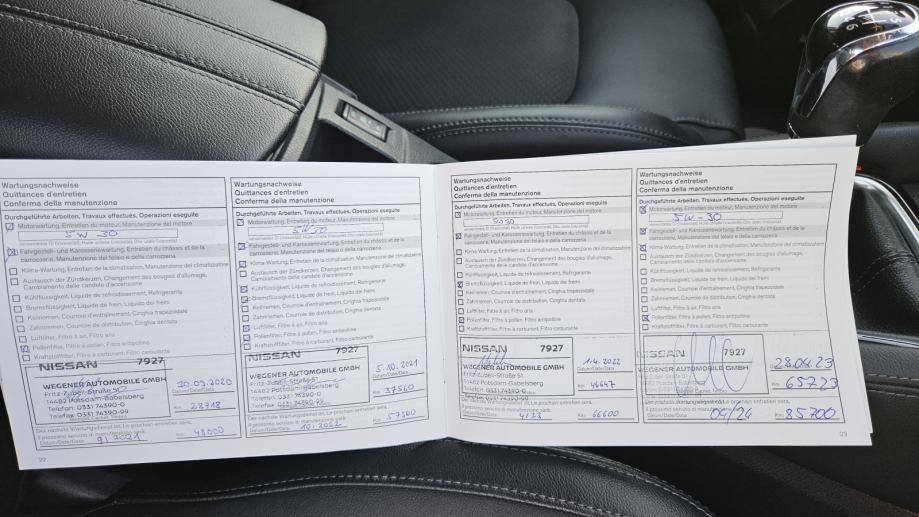 Wartungsnachweise
Quittances d'entretien
Conferma della manutenzione
Durchgeführte Arbeiten, Travaux effectués, Operazioni eseguite
Motorwartung, Entretien du moteur, Manutenzione del motore
5W 30
Fahrgestell- und Karosseriewartung, Entretien du châssis et de la
carrosserie, Manutenzione del telaio e della carrozzeria
Klima-Wartung, Entretien de la climatisation, Manutenzione del climatizzatore
Austausch der Zündkerzen, Changement des bougies d'allumage,
Cambiamento delle candele d'accensione
Kühlflüssigkeit, Liquide de refroidissement, Refrigerante
Bremsflüssigkeit, Liquide de frein, Liquido dei freni
Keilriemen, Courroie d'entraînement, Cinghia trapezoidale
Zahnriemen, Courroie de distribution, Cinghia dentata
Luftfilter, Filtre à air, Filtro aria
Pollenfilter, Filtre à pollen, Filtro antipolline
Kraftstofffilter, Filtre à carburant, Filtro carburante
NISSAN 7927
WEGENER AUTOMOBILE GMBH
Fritz-Zubeil-Straße 51
14482 Potsdam-Babelsberg
Telefon 0331 74390-0
Telefax 0331 74390-99
20.09.2020
Km 23718
Der nächste Wartungsdienst ist, Le prochain entretien sera,
Il prossimo servizio di manutenzione sarà:
Datum/Date/Data: 9/2021 Km: 43000
22
Wartungsnachweise
Quittances d'entretien
Conferma della manutenzione
Durchgeführte Arbeiten, Travaux effectués, Operazioni eseguite
Motorwartung, Entretien du moteur, Manutenzione del motore
5W30
Fahrgestell- und Karosseriewartung, Entretien du châssis et de la
carrosserie, Manutenzione del telaio e della carrozzeria
Klima-Wartung, Entretien de la climatisation, Manutenzione del climatizzatore
Austausch der Zündkerzen, Changement des bougies d'allumage,
Cambiamento delle candele d'accensione
Kühlflüssigkeit, Liquide de refroidissement, Refrigerante
Bremsflüssigkeit, Liquide de frein, Liquido dei freni
Keilriemen, Courroie d'entraînement, Cinghia trapezoidale
Zahnriemen, Courroie de distribution, Cinghia dentata
Luftfilter, Filtre à air, Filtro aria
Pollenfilter, Filtre à pollen, Filtro antipolline
Kraftstofffilter, Filtre à carburant, Filtro carburante
NISSAN 7927
WEGENER AUTOMOBILE GMBH
Fritz-Zubeil-Straße 51
14482 Potsdam-Babelsberg
Telefon 0331 74390-0
Telefax 0331 74390-99
5.10.2021
Km 37560
Der nächste Wartungsdienst ist, Le prochain entretien sera,
Il prossimo servizio di manutenzione sarà:
Datum/Date/Data: 10/2022 Km: 57560
Wartungsnachweise
Quittances d'entretien
Conferma della manutenzione
Durchgeführte Arbeiten, Travaux effectués, Operazioni eseguite
Motorwartung, Entretien du moteur, Manutenzione del motore
5030
Fahrgestell- und Karosseriewartung, Entretien du châssis et de la
carrosserie, Manutenzione del telaio e della carrozzeria
Klima-Wartung, Entretien de la climatisation, Manutenzione del climatizzatore
Austausch der Zündkerzen, Changement des bougies d'allumage,
Cambiamento delle candele d'accensione
Kühlflüssigkeit, Liquide de refroidissement, Refrigerante
Bremsflüssigkeit, Liquide de frein, Liquido dei freni
Keilriemen, Courroie d'entraînement, Cinghia trapezoidale
Zahnriemen, Courroie de distribution, Cinghia dentata
Luftfilter, Filtre à air, Filtro aria
Pollenfilter, Filtre à pollen, Filtro antipolline
Kraftstofffilter, Filtre à carburant, Filtro carburante
NISSAN 7927
WEGENER AUTOMOBILE GMBH
Fritz-Zubeil-Straße 51
14482 Potsdam-Babelsberg
Telefon 0331 74390-0
Telefax 0331 74390-99
1.4.2022
Km 46647
Der nächste Wartungsdienst ist, Le prochain entretien sera,
Il prossimo servizio di manutenzione sarà:
Datum/Date/Data: 4/23 Km: 66600
Wartungsnachweise
Quittances d'entretien
Conferma della manutenzione
Durchgeführte Arbeiten, Travaux effectués, Operazioni eseguite
Motorwartung, Entretien du moteur, Manutenzione del motore
5W-30
Fahrgestell- und Karosseriewartung, Entretien du châssis et de la
carrosserie, Manutenzione del telaio e della carrozzeria
Klima-Wartung, Entretien de la climatisation, Manutenzione del climatizzatore
Austausch der Zündkerzen, Changement des bougies d'allumage,
Cambiamento delle candele d'accensione
Kühlflüssigkeit, Liquide de refroidissement, Refrigerante
Bremsflüssigkeit, Liquide de frein, Liquido dei freni
Keilriemen, Courroie d'entraînement, Cinghia trapezoidale
Zahnriemen, Courroie de distribution, Cinghia dentata
Luftfilter, Filtre à air, Filtro aria
Pollenfilter, Filtre à pollen, Filtro antipolline
Kraftstofffilter, Filtre à carburant, Filtro carburante
NISSAN 7927
WEGENER AUTOMOBILE GMBH
28.04.23
Km 65723
Il prossimo servizio di manutenzione sarà:
Datum/Date/Data: 04/24 Km: 85700
23